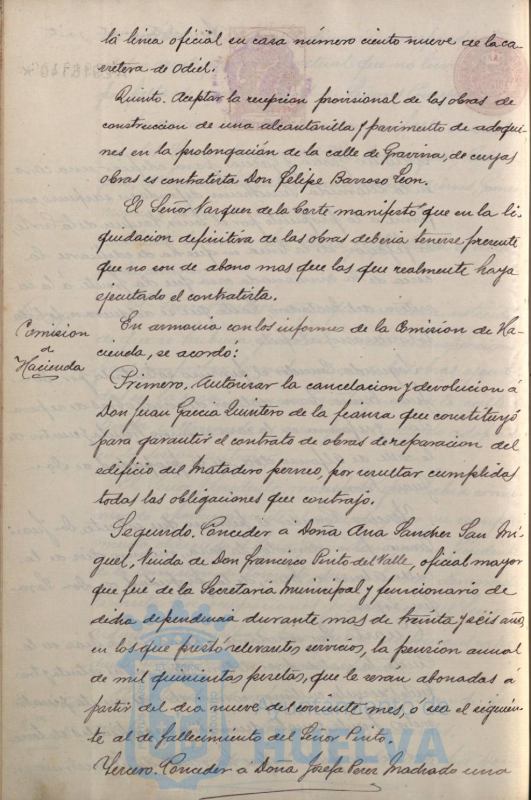 la linea oficial en casa número ciento nueve de la ca-
rretera de Odiel.
Quinto. Aceptar la recepcion provisional de las obras de
construccion de una alcantarilla y pavimento de adoqui-
nes en la prolongación de la calle de Gravina, de cuyas
obras es contratista Don Felipe Barroso Leon.
El Señor Vazquez de la Corte manifestó que en la li-
quidacion definitiva de las obras deberia tenerse presente
que no son de abono mas que las que realmente haya
ejecutado el contratista.
Comision
de
Hacienda
En armonia con los informes de la Comisión de Ha-
cienda, se acordó:
Primero. Autorizar la cancelacion y devolucion á
Don Juan Garcia Quintero de la fianza que constituyó
para garantir el contrato de obras de reparacion del
edificio del Matadero porcuno, por resultar cumplidas
todas las obligaciones que contrajo.
Segundo. Conceder á Doña Ana Sanchez San Mi-
guel, Viuda de Don Francisco Pinto del Valle, oficial mayor
que fué de la Secretaria Municipal y funcionario de
dicha dependencia durante mas de treinta y séis años,
en los que prestó relevantes servicios, la pension anual
de mil quinientas pesetas, que le serán abonadas á
partir del dia nueve del corriente mes, ó sea el siguien-
te al de fallecimiento del Señor Pinto.
Tercero. Conceder á Doña Josefa Perez Machado una
HUELVA